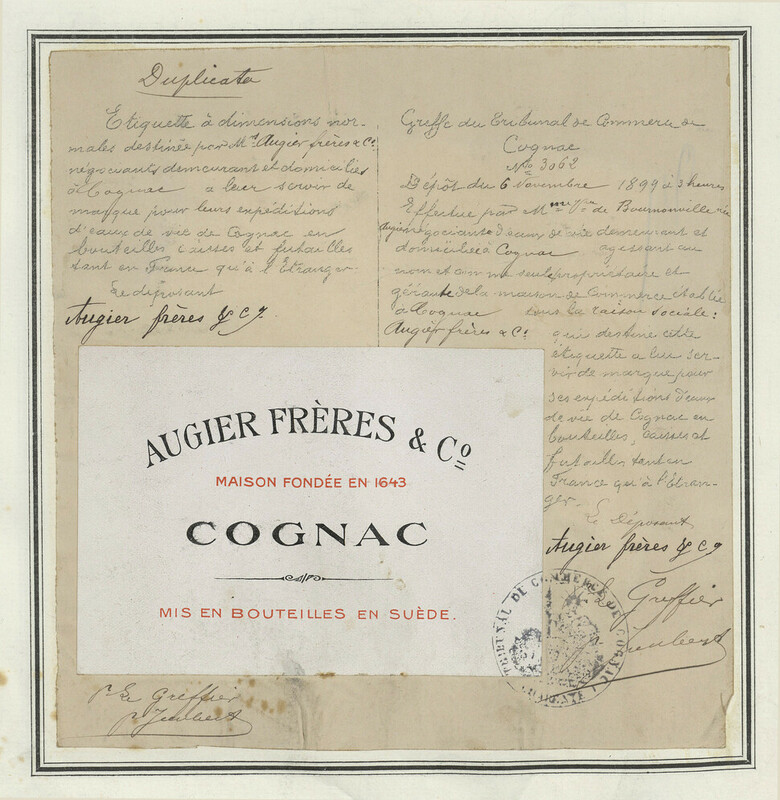 Duplicata
Etiquette à dimensions nor-
males destinée par M.rs Augier frères & Co.
négociants demeurant et domiciliés
à Cognac a leur servir de
marque pour leurs expéditions
d'eaux de vie de Cognac en
bouteilles, caisses et futailles
tant en France qu'à l'Etranger.
Le déposant
Augier frères & Co.
Greffe du Tribunal de Commerce de
Cognac
No. 3062
Dépôt du 6 Novembre 1899 à 3 heures
Effectué par Mme Vve de Bournonville née
Augier négociante d'eaux de vie demeurant et
domiciliée à Cognac agissant au
nom et comme seule propriétaire et
gérante de la maison de Commerce établie
à Cognac sous la raison sociale:
Augier frères & Co.
qui destine cette
étiquette a lui ser-
vir de marque pour
ses expéditions d'eaux
de vie de Cognac en
bouteilles, caisses et
futailles tant en
France qu'à l'Etran-
ger.
Le Déposant
Augier frères & Co.
Le Greffier
AUGIER FRÈRES & Co
MAISON FONDÉE EN 1643
COGNAC
MIS EN BOUTEILLES EN SUÈDE.
TRIBUNAL DE COMMERCE DE COGNAC
CHARENTE
pr Le Greffier